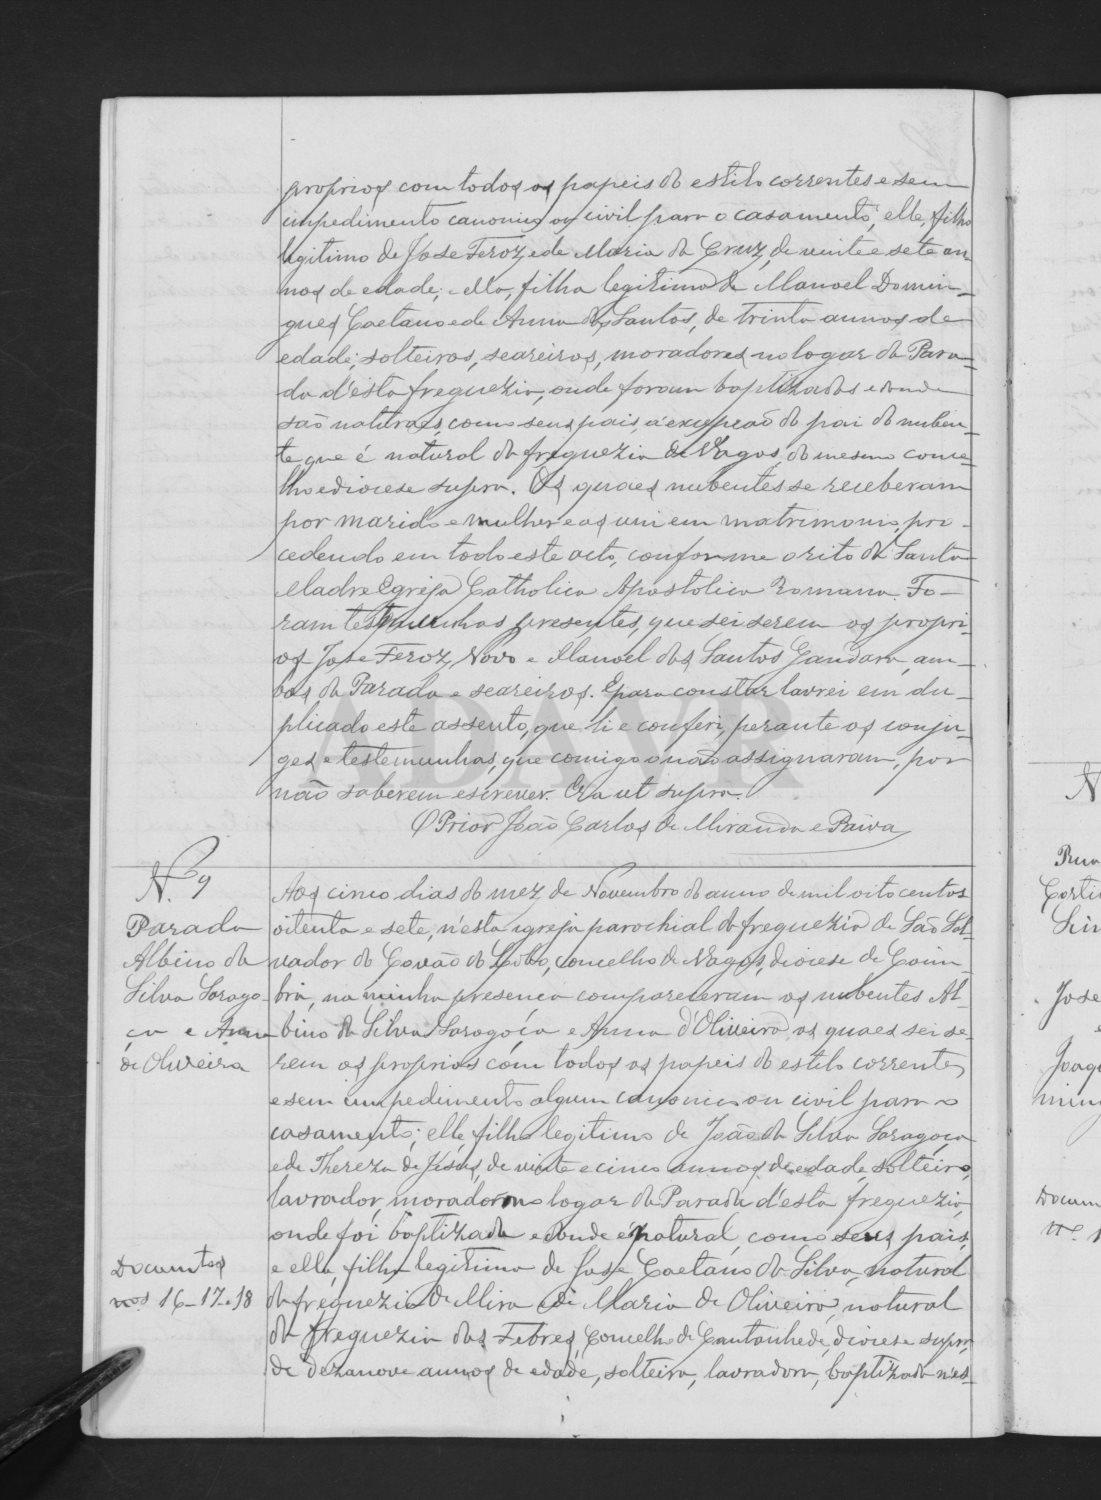 proprios com todos os papeis do estilo correntes e sem
impedimento canonico ou civil para o casamento; elle, filho
legitimo de José Feroz, e de Maria da Cruz, de vinte e sete an-
nos de edade; ella, filha legitima de Manoel Domin-
gues Caetano e de Anna dos Santos, de trinta annos de
edade; solteiros, seareiros, moradores no logar da Para-
da d'esta freguezia, onde foram baptizados e donde
são naturaes, como seus pais, á excepção do pai do nuben-
te que é natural da freguezia de Vagos, do mesmo conce-
lho e diocese supra. Os quaes nubentes se receberam
por marido e mulher e os uni em matrimonio, pro-
cedendo em todo este acto, conforme o rito da Santa
Madre Egreja Catholica Apostolica Romana. Fo-
ram testemunhas presentes, que sei serem os propri-
os José Feroz, Novo e Manoel dos Santos Gandara, am-
bos da Parada e seareiros. E para constar lavrei em du-
plicado este assento, que li e conferi, perante os conju-
ges e testemunhas, que comigo o não assignaram, por
não saberem escrever. Era ut supra.
O Prior João Carlos de Miranda e Paiva
N.º 9
Parada
Albino da
Silva Sarago-
ça e Anna
de Oliveira
Aos cinco dias do mez de Novembro do anno de mil oito centos
oitenta e sete, n'esta igreja parochial da freguezia de São Sal-
vador do Covão do Lobo, concelho de Vagos, diocese de Coim-
bra, na minha presença compareceram os nubentes Al-
bino da Silva Saragoça e Anna d'Oliveira os quaes sei se-
rem os proprios com todos os papeis do estilo correntes
e sem impedimento algum canonico ou civil para o
casamento; elle, filho legitimo de João da Silva Saragoça
e de Thereza de Jesus, de vinte e cinco annos de edade, solteiro,
lavrador, morador no logar da Parada d'esta freguezia,
onde foi baptizado e donde é natural, como seus pais,
e ella, filha legitima de José Caetano da Silva, natural
da freguezia de Mira e de Maria de Oliveira, natural
da freguezia das Febres, Concelho de Cantanhede, diocese supra,
de dezanove annos de edade, solteira, lavradora, baptizada n'es-
Documtos
nos 16-17-18
ADAVR